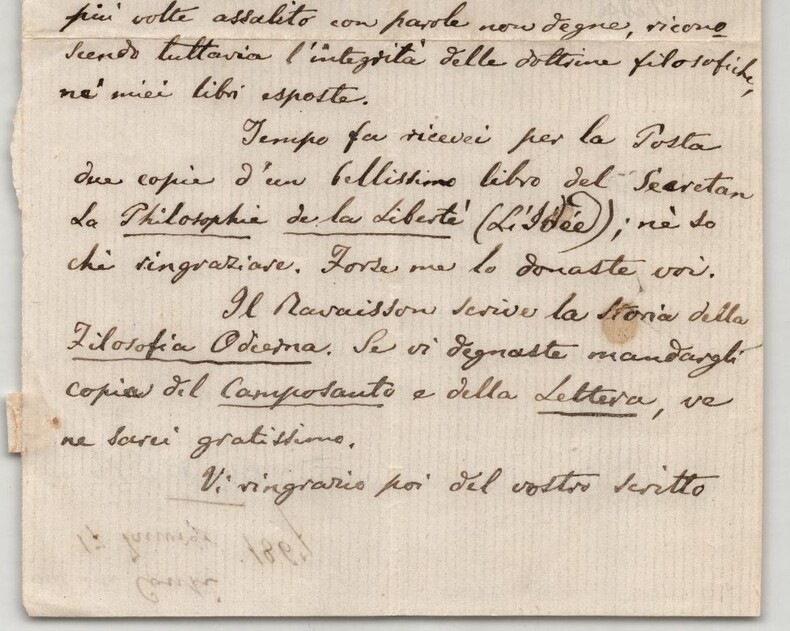 più volte assalito con parole non degne, ricono
scendo tuttavia l'integrità delle dottrine filosofiche,
ne' miei libri esposte.
Tempo fa ricevei per la Posta
due copie d'un bellissimo libro del Secretan
La Philosophie de la Liberté (L'Idée); nè so
chi ringraziare. Forse me lo donaste voi.
Il Ravaisson scrive la storia della
Filosofia Odierna. Se vi degnaste mandargli
copia del Camposanto e della Lettera, ve
ne sarei gratissimo.
Vi ringrazio poi del vostro scritto